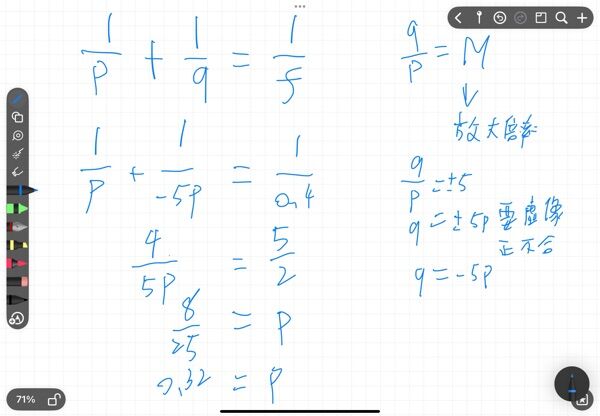 1/p + 1/q = 1/f
1/p + 1/-5p = 1/0.4
4/5p = 5/2
8/25 = p
0.32 = p
q/p = M
↓
放大倍率
q/p = ±5
q = ±5p 要虛像
正不合
q = -5p
71%